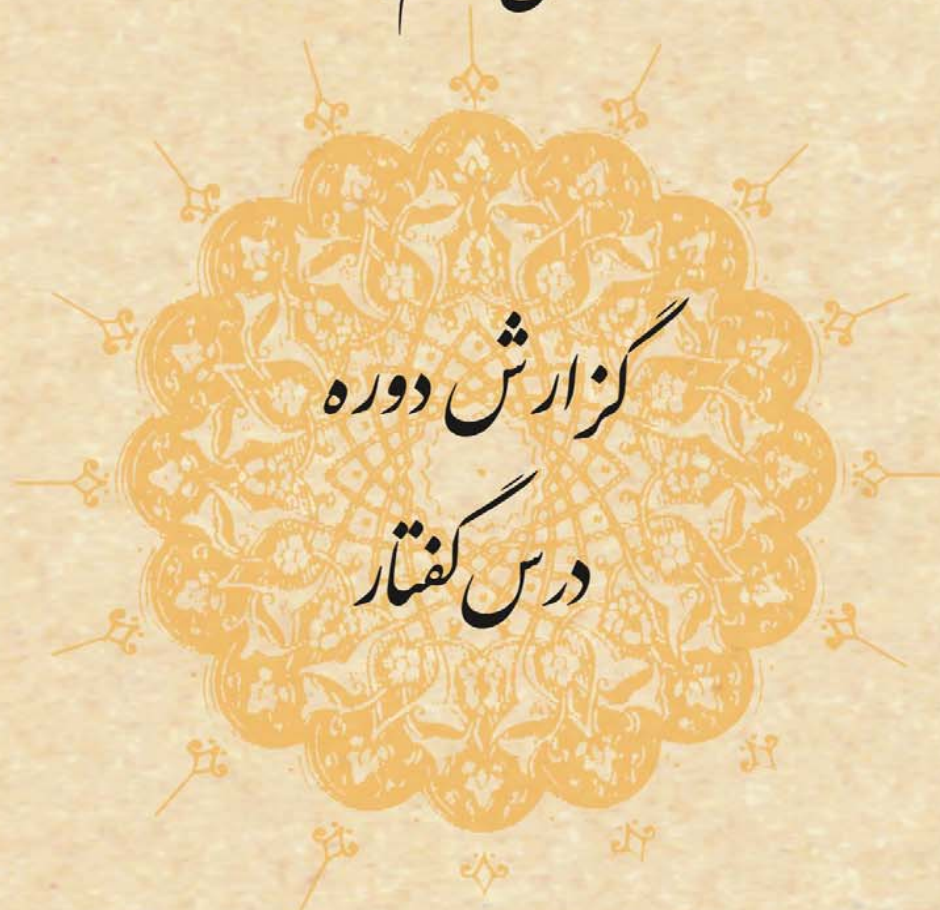 گزارش دوره
درس گفتار